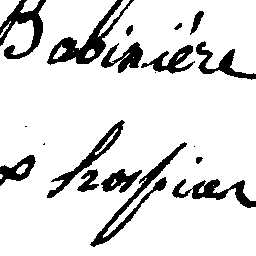 Babiniére
hospices